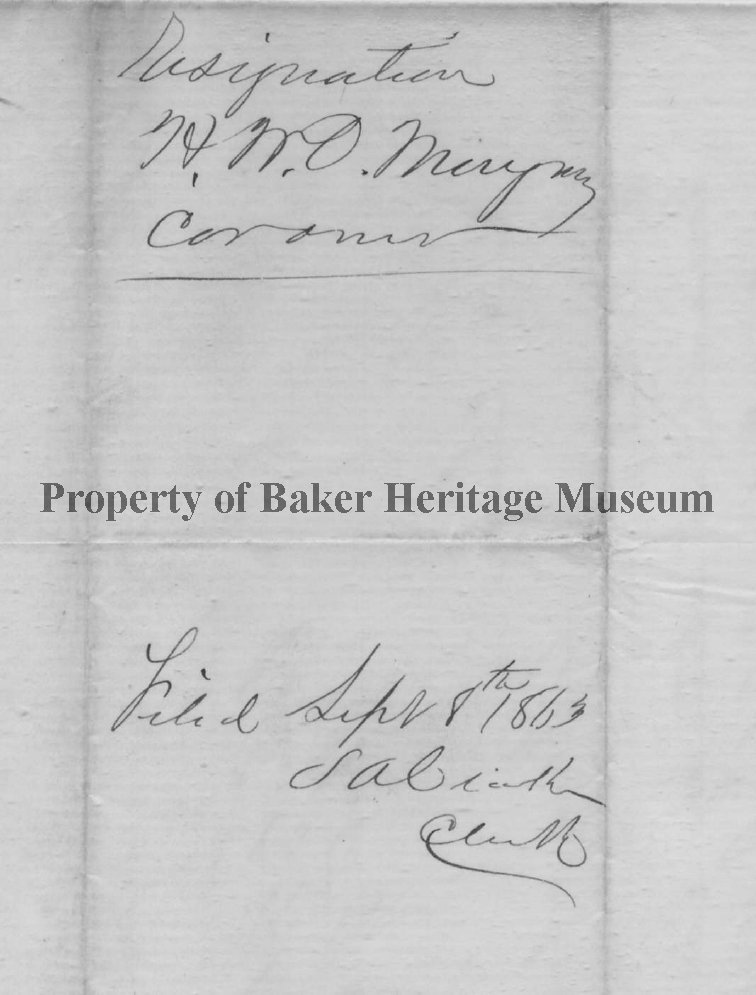 Resignation
H. W. D.
Coroner
Property of Baker Heritage Museum
Filed Sept 8th 1863
S A
Clerk